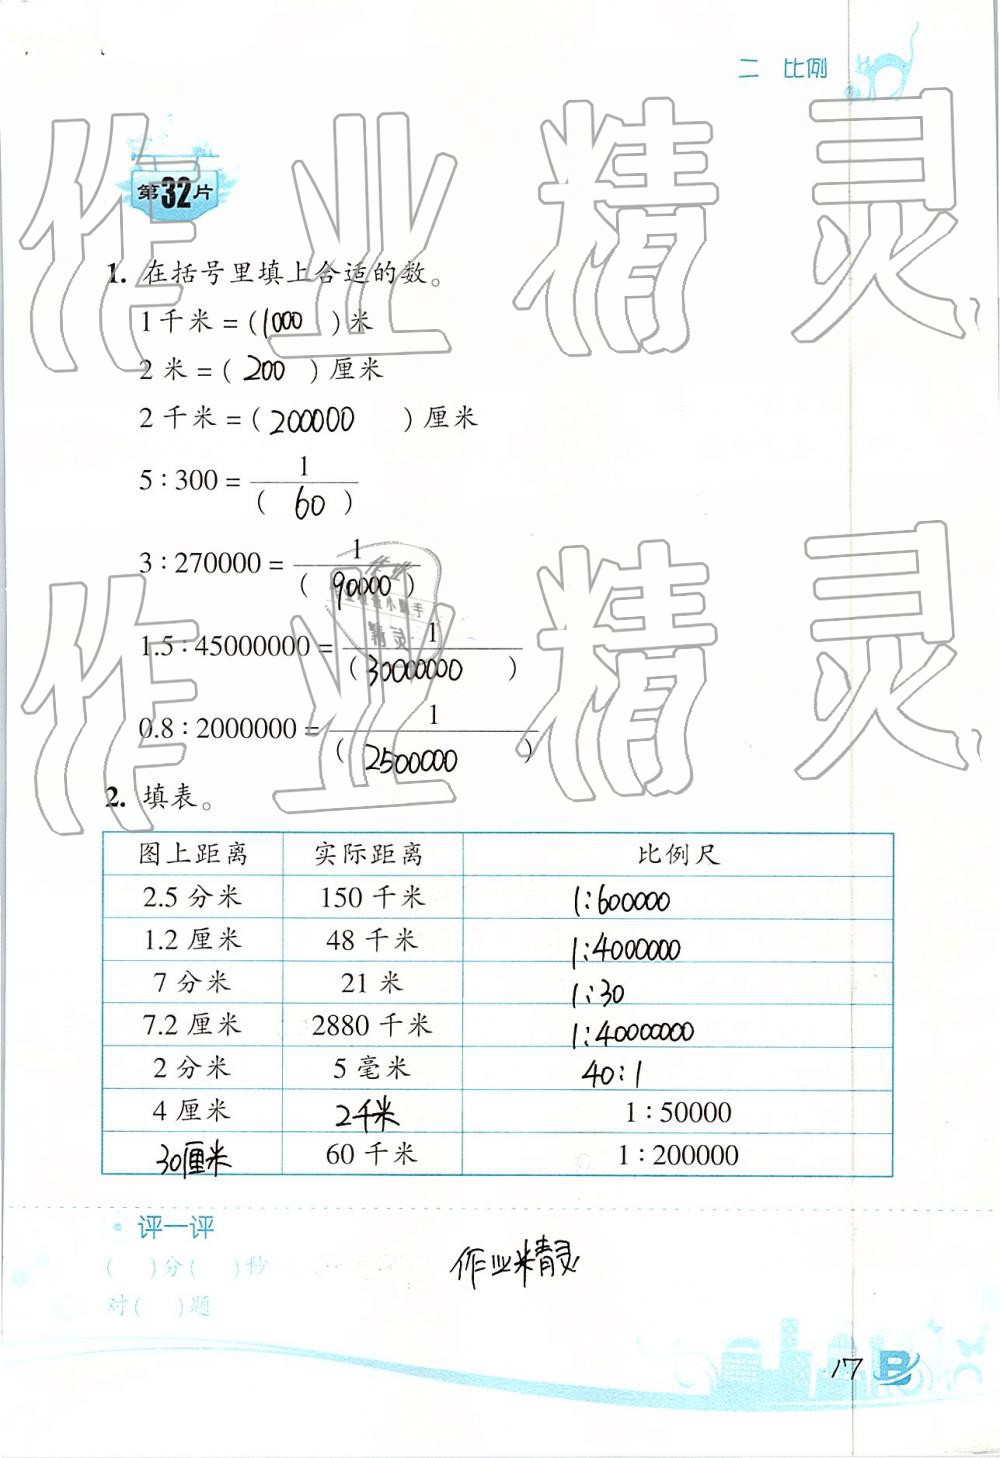 二 比例
第32片
1. 在括号里填上合适的数。
1千米=(1000)米
2米=(200)厘米
2千米=(200000)厘米
5:300=1/(60)
3:270000=1/(90000)
1.5:45000000=1/(30000000)
0.8:2000000=1/(2500000)
2. 填表。
图上距离 实际距离 比例尺
2.5分米 150千米 1:600000
1.2厘米 48千米 1:4000000
7分米 21米 1:30
7.2厘米 2880千米 1:40000000
2分米 5毫米 40:1
4厘米 2千米 1:50000
30厘米 60千米 1:200000
评一评
( )分( )秒
对( )题
作业精灵
17
作业精灵
作业精灵